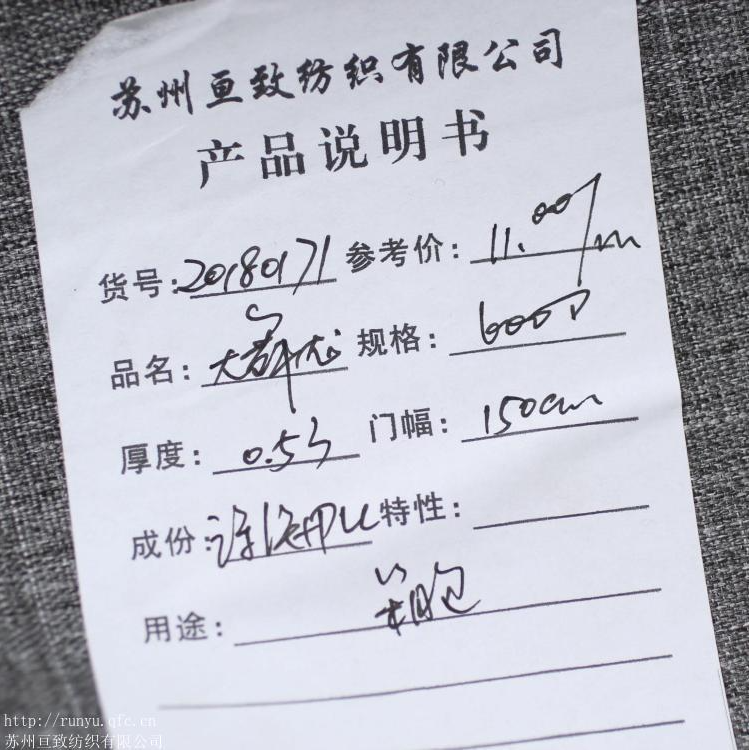 苏州亘致纺织有限公司
产品说明书
货号:20180171 参考价: 11.00/m
品名: 规格: 600D
厚度: 0.55 门幅: 150cm
成份: 特性:
用途:
http://runyu.qfc.cn
苏州亘致纺织有限公司